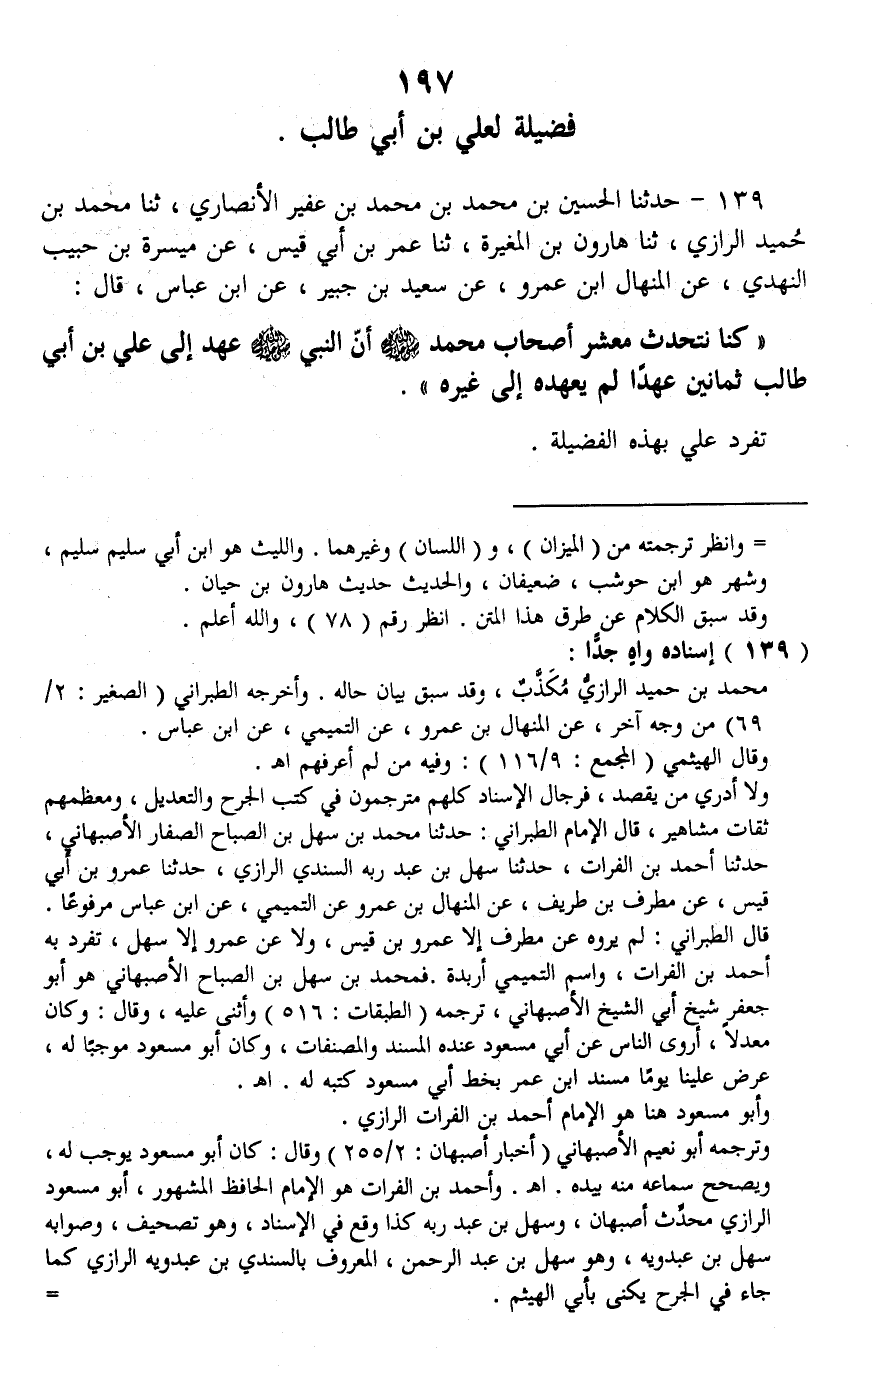 ١٩٧
فضيلة لعلي بن أبي طالب .
١٣٩ - حدثنا الحسين بن محمد بن محمد بن عفير الأنصاري ، ثنا محمد بن
حُميد الرازي ، ثنا هارون بن المغيرة ، ثنا عمر بن أبي قيس ، عن ميسرة بن حبيب
النهدي ، عن المنهال ابن عمرو ، عن سعيد بن جبير ، عن ابن عباس ، قال :
« كنا نتحدث معشر أصحاب محمد ﷺ أنّ النبي ﷺ عهد إلى علي بن أبي
طالب ثمانين عهدًا لم يعهده إلى غيره » .
تفرد علي بهذه الفضيلة .
= وانظر ترجمته من ( الميزان ) ، و ( اللسان ) وغيرهما . والليث هو ابن أبي سليم سليم ،
وشهر هو ابن حوشب ، ضعيفان ، والحديث حديث هارون بن حيان .
وقد سبق الكلام عن طرق هذا المتن . انظر رقم ( ٧٨ ) ، والله أعلم .
( ١٣٩ ) إسناده واهٍ جدًّا :
محمد بن حميد الرازيُّ مُكَذَّبٌ ، وقد سبق بيان حاله . وأخرجه الطبراني ( الصغير : ٢/
٦٩) من وجه آخر ، عن المنهال بن عمرو ، عن التميمي ، عن ابن عباس .
وقال الهيثمي ( المجمع : ١١٦/٩ ) : وفيه من لم أعرفهم اهـ .
ولا أدري من يقصد ، فرجال الإسناد كلهم مترجمون في كتب الجرح والتعديل ، ومعظمهم
ثقات مشاهير ، قال الإمام الطبراني : حدثنا محمد بن سهل بن الصباح الصفار الأصبهاني ،
حدثنا أحمد بن الفرات ، حدثنا سهل بن عبد ربه السندي الرازي ، حدثنا عمرو بن أبي
قيس ، عن مطرف بن طريف ، عن المنهال بن عمرو عن التميمي ، عن ابن عباس مرفوعًا .
قال الطبراني : لم يروه عن مطرف إلا عمرو بن قيس ، ولا عن عمرو إلا سهل ، تفرد به
أحمد بن الفرات ، واسم التميمي أربدة .فمحمد بن سهل بن الصباح الأصبهاني هو أبو
جعفر شيخ أبي الشيخ الأصبهاني ، ترجمه ( الطبقات : ٥١٦ ) وأثنى عليه ، وقال : وكان
معدلاً ، أروى الناس عن أبي مسعود عنده المسند والمصنفات ، وكان أبو مسعود موجبًا له ،
عرض علينا يومًا مسند ابن عمر بخط أبي مسعود كتبه له . اهـ .
وأبو مسعود هنا هو الإمام أحمد بن الفرات الرازي .
وترجمه أبو نعيم الأصبهاني ( أخبار أصبهان : ٢٥٥/٢ ) وقال : كان أبو مسعود يوجب له ،
ويصحح سماعه منه بيده . اهـ . وأحمد بن الفرات هو الإمام الحافظ المشهور ، أبو مسعود
الرازي محدِّث أصبهان ، وسهل بن عبد ربه كذا وقع في الإسناد ، وهو تصحيف ، وصوابه
سهل بن عبدويه ، وهو سهل بن عبد الرحمن ، المعروف بالسندي بن عبدويه الرازي كما
جاء في الجرح يكنى بأبي الهيثم . =